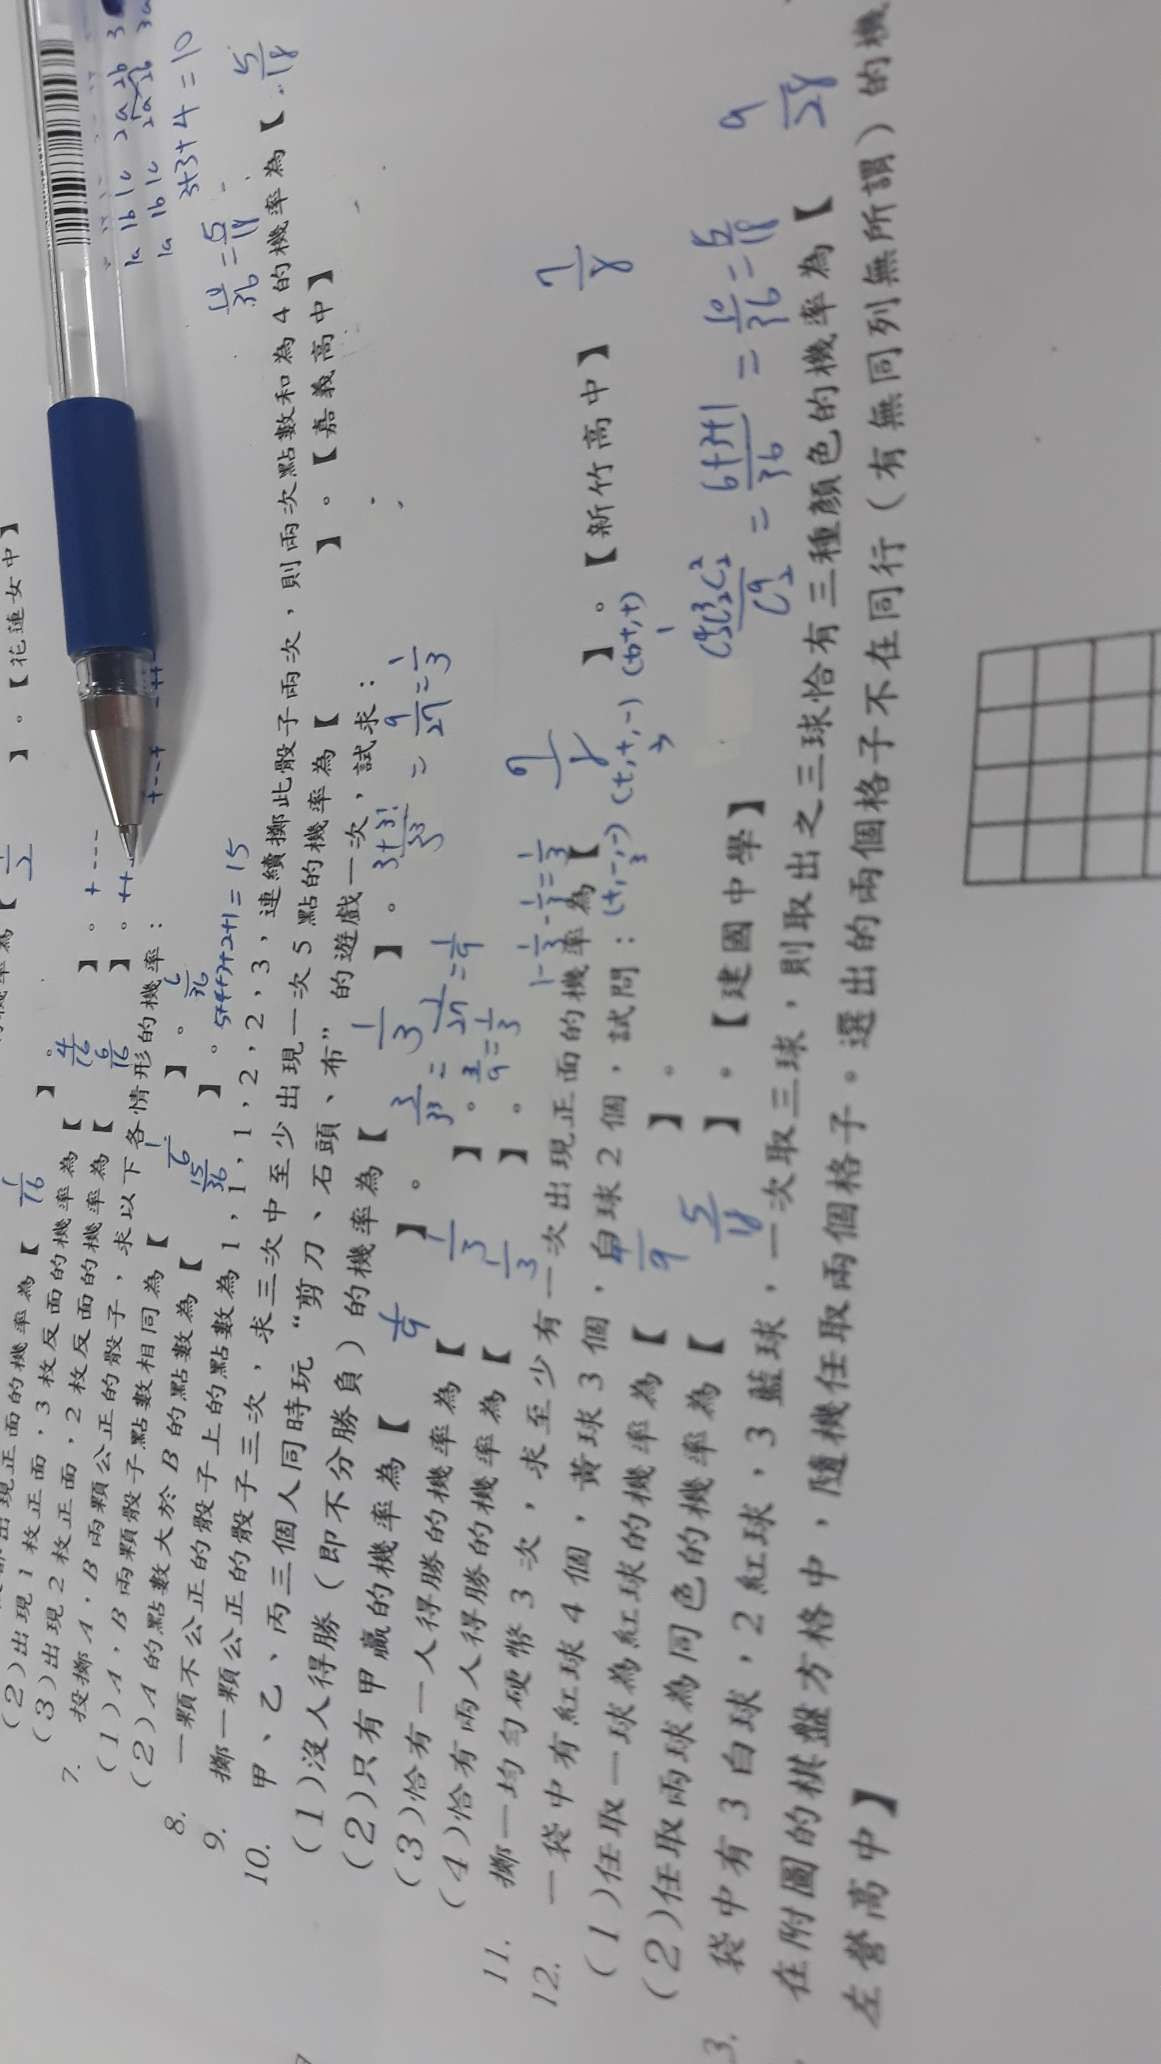 】。【花蓮女中】
(2)出現1枚正面,3枚反面的機率為【 】。
(3)出現2枚正面,2枚反面的機率為【 】。
7. 投擲A,B兩顆公正的骰子,求以下各情形的機率:
(1)A,B兩顆骰子點數相同為【 1/6 】。 6/36
(2)A的點數大於B的點數為【 15/36 】。 5+4+3+2+1=15
8. 一顆不公正的骰子上的點數為1,1,1,2,2,3,連續擲此骰子兩次,則兩次點數和為4的機率為【 5/18
3+3+4=10
10/36=5/18
9. 擲一顆公正的骰子三次,求三次中至少出現一次5點的機率為【 】。【嘉義高中】
10. 甲、乙、丙三個人同時玩“剪刀、石頭、布”的遊戲一次,試求:
(1)沒人得勝(即不分勝負)的機率為【 1/3 】。 3+3!/3³ = 9/27=1/3
(2)只有甲贏的機率為【 1/9 】。 3/3³ = 3/27=1/9
(3)恰有一人得勝的機率為【 1/3 】。 3/9=1/3
(4)恰有兩人得勝的機率為【 1/3 】。 1-1/3-1/3=1/3
11. 擲一均勻硬幣3次,求至少有一次出現正面的機率為【 7/8 】。【新竹高中】 7/8
12. 一袋中有紅球4個,黃球3個,白球2個,試問: (+,-,-) (+,+,-) (+,+,+)
(1)任取一球為紅球的機率為【 4/9 】。
(2)任取兩球為同色的機率為【 5/18 】。【建國中學】 = 6+3+1/36 = 10/36 = 5/18
3. 袋中有3白球,2紅球,3藍球,一次取三球,則取出之三球恰有三種顏色的機率為【 9/28
在附圖的棋盤方格中,隨機任取兩個格子。選出的兩個格子不在同行(有無同列無所謂)的機
左營高中】